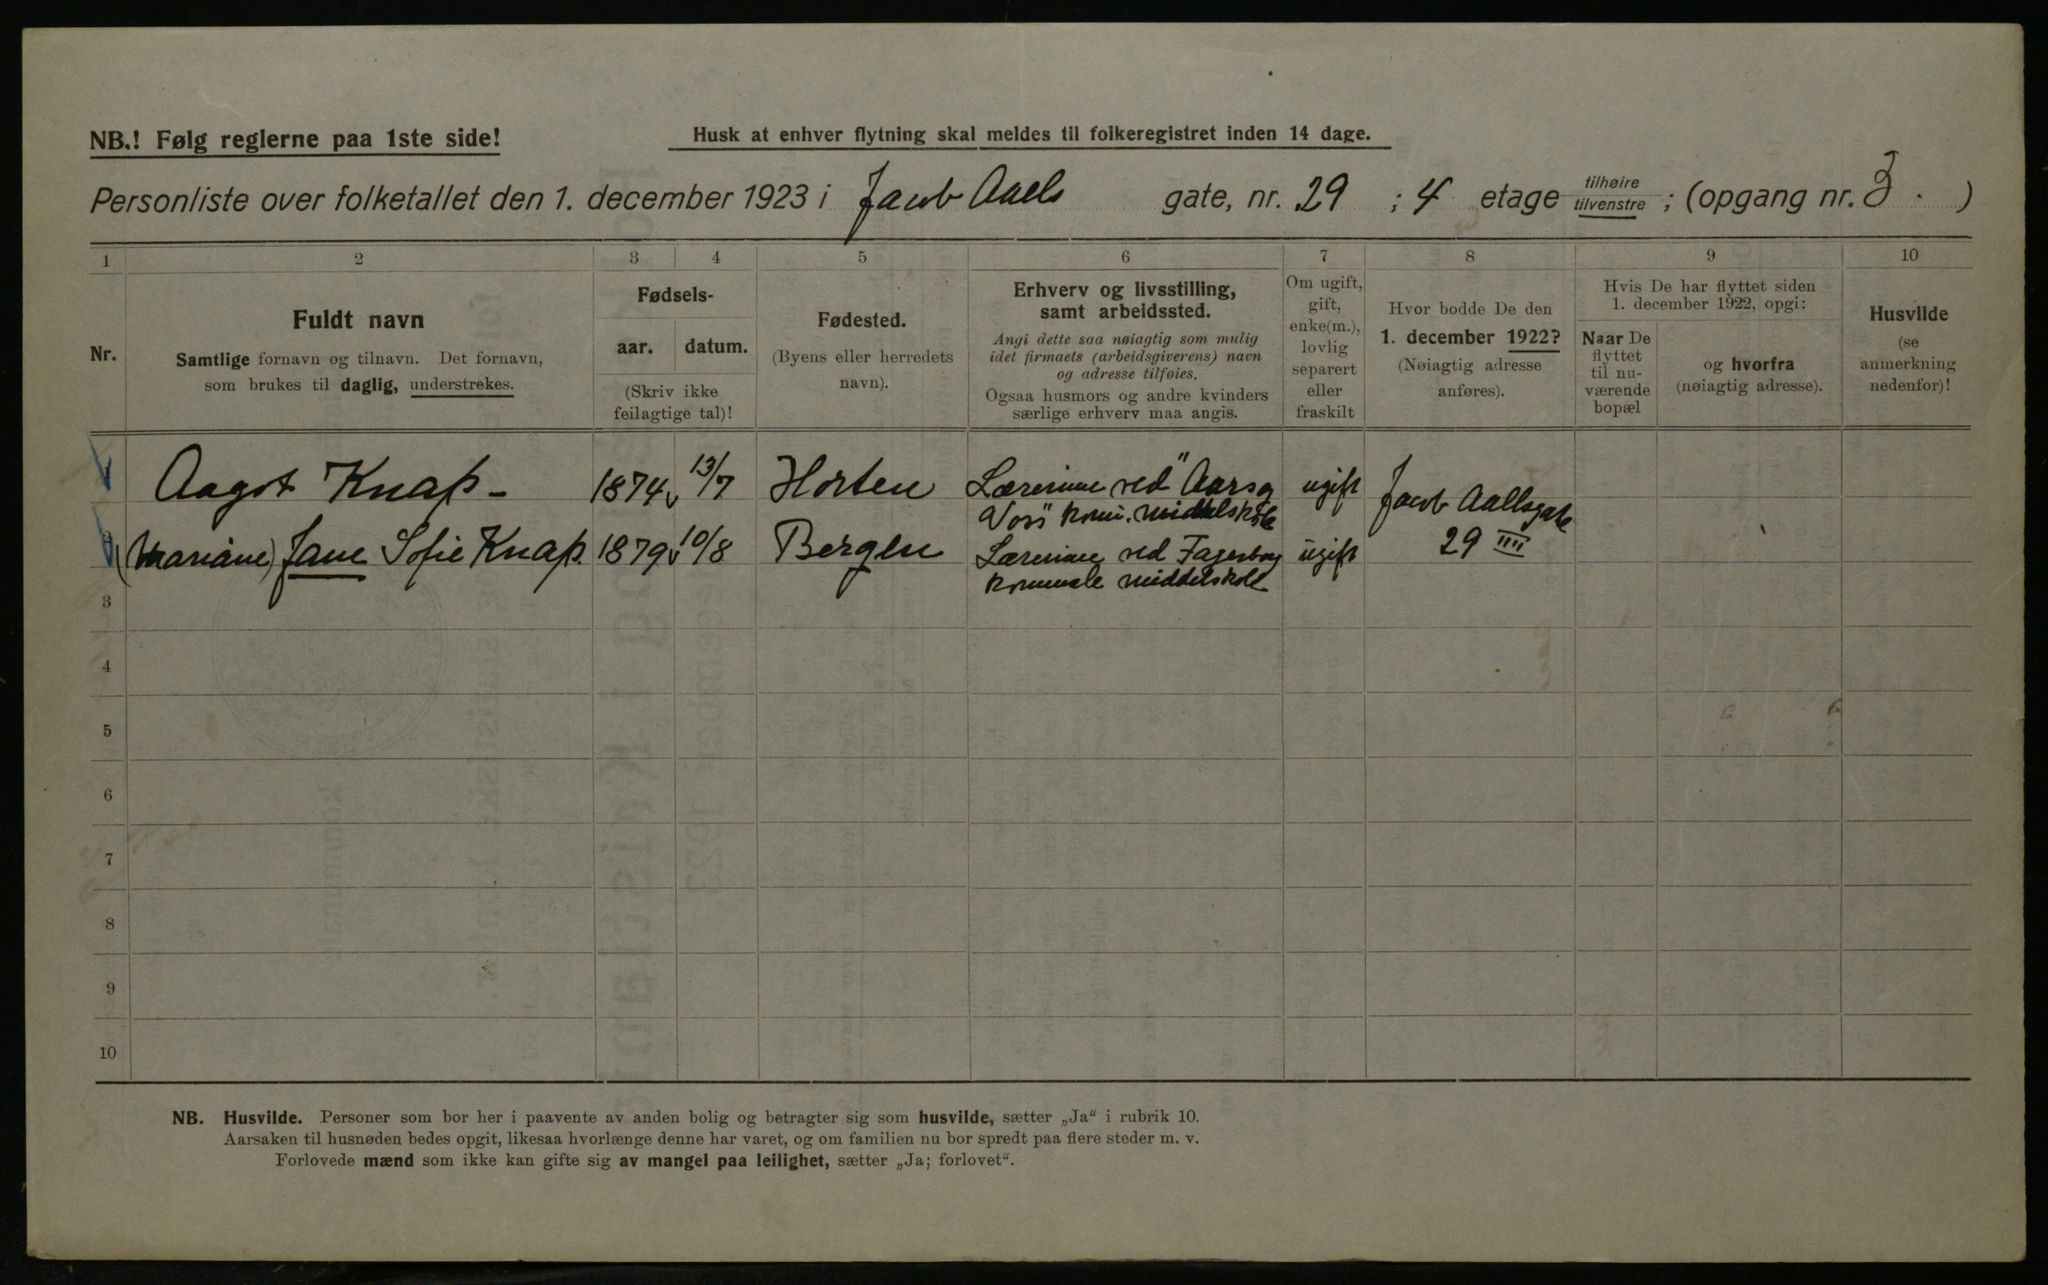 NB.! Følg reglerne paa 1ste side!
Husk at enhver flytning skal meldes til folkeregistret inden 14 dage.
Personliste over folketallet den 1. december 1923 i Jacob Aals gate, nr. 29 ; 4 etage tilhøire tilvenstre ; (opgang nr. 3. )
1 2 3 4 5 6 7 8 9 10
Nr.
Fuldt navn
Samtlige fornavn og tilnavn. Det fornavn,
som brukes til daglig, understrekes.
Fødsels-
aar. datum.
(Skriv ikke
feilagtige tal)!
Fødested.
(Byens eller herredets
navn).
Erhverv og livsstilling,
samt arbeidssted.
Angi dette saa nøiagtig som mulig
idet firmaets (arbeidsgiverens) navn
og adresse tilføies.
Ogsaa husmors og andre kvinders
særlige erhverv maa angis.
Om ugift,
gift,
enke(m.),
lovlig
separert
eller
fraskilt
Hvor bodde De den
1. december 1922?
(Nøiagtig adresse
anføres).
Hvis De har flyttet siden
1. december 1922, opgi:
Naar De
flyttet
til nu-
værende
bopæl
og hvorfra
(nøiagtig adresse).
Husvilde
(se
anmerkning
nedenfor)!
Aagot Knap - 1874 13/7 Horten Lærerinne ved "Aars og ugift Jacob Aallsgate
Voss" komm. middelskole
(Mariane) Jane Sofie Knap. 1879 10/8 Bergen Lærerinne ved Fagerborg ugift 29 IIII
kommunale middelskole
3
4
5
6
7
8
9
10
NB. Husvilde. Personer som bor her i paavente av anden bolig og betragter sig som husvilde, sætter „Ja“ i rubrik 10.
Aarsaken til husnøden bedes opgit, likesaa hvorlænge denne har varet, og om familien nu bor spredt paa flere steder m. v.
Forlovede mænd som ikke kan gifte sig av mangel paa leilighet, sætter „Ja; forlovet“.